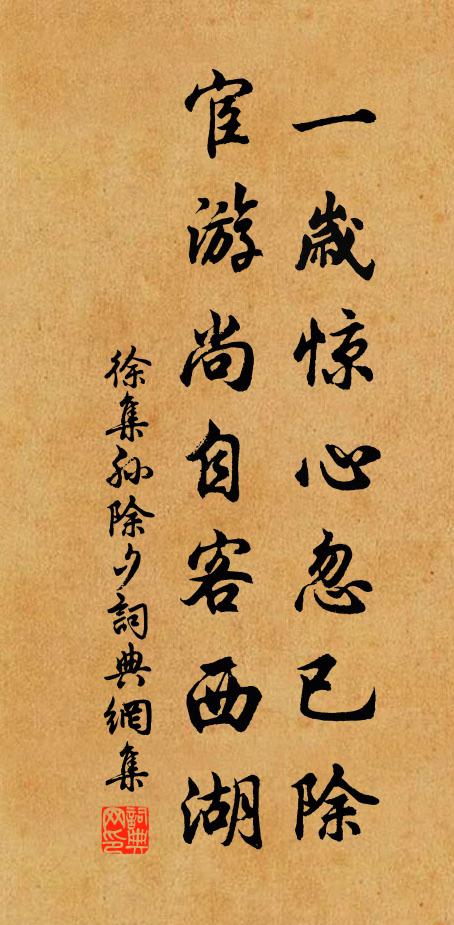 一歲惊心忽已除
宦游尚自客西湖
徐集孙除夕詞典網集
詞典網印